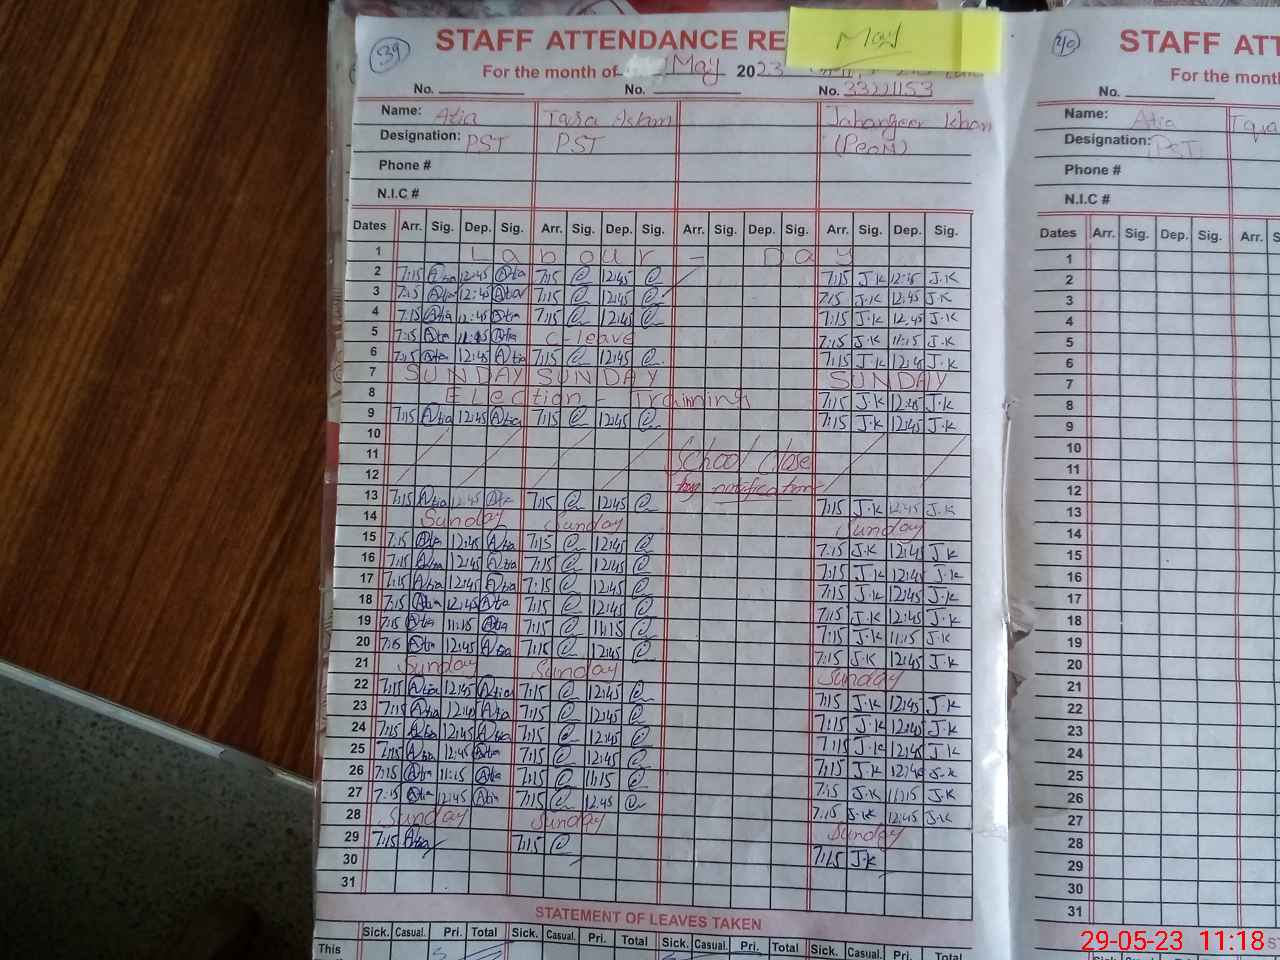 39 STAFF ATTENDANCE RE May 40 STAFF ATT
For the month of May 2023 For the month
No. No. No. 33221153 No.
Name: Atia Iqra Aslam Jahangeer Khan Name: Atia Iqra
Designation: PST PST (Peon) Designation: PST
Phone # Phone #
N.I.C # N.I.C #
Dates Arr. Sig. Dep. Sig. Arr. Sig. Dep. Sig. Arr. Sig. Dep. Sig. Arr. Sig. Dep. Sig. Dates Arr. Sig. Dep. Sig. Arr. S
1 Labour - Day 1
2 7:15 Atia 12:45 Atia 7:15 @ 12:45 @ 7:15 J.K 12:45 J.K 2
3 7:15 Atia 12:45 Atia 7:15 @ 12:45 @ 7:15 J.K 12:45 J.K 3
4 7:15 Atia 12:45 Atia 7:15 @ 12:45 @ 7:15 J.K 12:45 J.K 4
5 7:15 Atia 11:15 Atia C-leave 7:15 J.K 11:15 J.K 5
6 7:15 Atia 12:45 Atia 7:15 @ 12:45 @ 7:15 J.K 12:45 J.K 6
7 SUNDAY SUNDAY SUNDAY 7
8 Election - Trainning 7:15 J.K 12:45 J.K 8
9 7:15 Atia 12:45 Atia 7:15 @ 12:45 @ 7:15 J.K 12:45 J.K 9
10 10
11 School Close 11
12 by notification 12
13 7:15 Atia 12:45 Atia 7:15 @ 12:45 @ 7:15 J.K 12:45 J.K 13
14 Sunday Sunday Sunday 14
15 7:15 Atia 12:45 Atia 7:15 @ 12:45 @ 7:15 J.K 12:45 J.K 15
16 7:15 Atia 12:45 Atia 7:15 @ 12:45 @ 7:15 J.K 12:45 J.K 16
17 7:15 Atia 12:45 Atia 7:15 @ 12:45 @ 7:15 J.K 12:45 J.K 17
18 7:15 Atia 12:45 Atia 7:15 @ 12:45 @ 7:15 J.K 12:45 J.K 18
19 7:15 Atia 11:15 Atia 7:15 @ 11:15 @ 7:15 J.K 11:15 J.K 19
20 7:15 Atia 12:45 Atia 7:15 @ 12:45 @ 7:15 J.K 12:45 J.K 20
21 Sunday Sunday Sunday 21
22 7:15 Atia 12:45 Atia 7:15 @ 12:45 @ 7:15 J.K 12:45 J.K 22
23 7:15 Atia 12:45 Atia 7:15 @ 12:45 @ 7:15 J.K 12:45 J.K 23
24 7:15 Atia 12:45 Atia 7:15 @ 12:45 @ 7:15 J.K 12:45 J.K 24
25 7:15 Atia 12:45 Atia 7:15 @ 12:45 @ 7:15 J.K 12:45 J.K 25
26 7:15 Atia 11:15 Atia 7:15 @ 11:15 @ 7:15 J.K 11:15 J.K 26
27 7:15 Atia 12:45 Atia 7:15 @ 12:45 @ 7:15 J.K 12:45 J.K 27
28 Sunday Sunday Sunday 28
29 7:15 Atia 7:15 @ 7:15 J.K 29
30 30
31 31
STATEMENT OF LEAVES TAKEN
Sick. Casual. Pri. Total Sick. Casual. Pri. Total Sick. Casual. Pri. Total Sick. Casual. Pri. Total
This
29-05-23 11:18